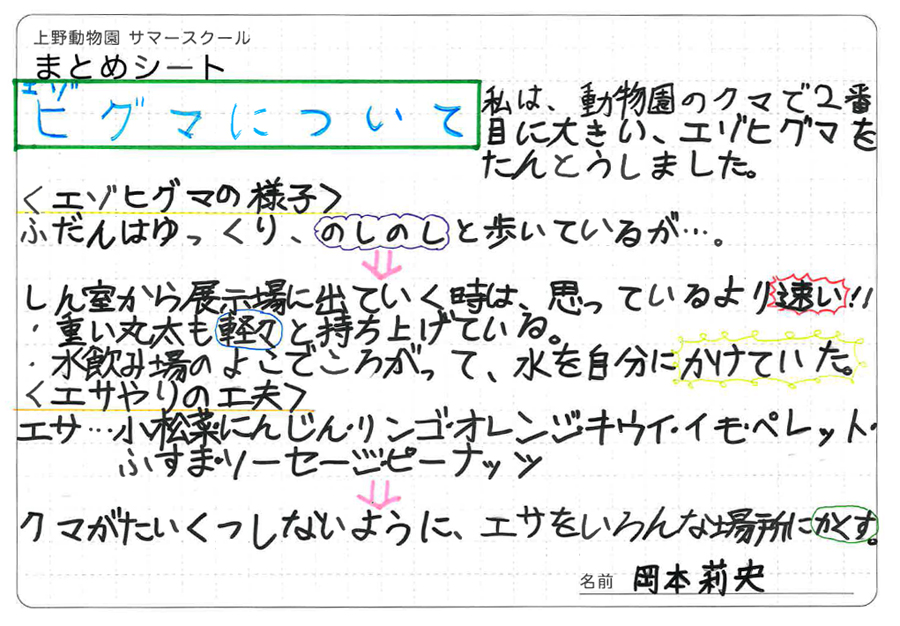 上野動物園 サマースクール
まとめシート
エゾ
ヒグマについて
私は、動物園のクマで2番
目に大きい、エゾヒグマを
たんとうしました。
<エゾヒグマの様子>
ふだんはゆっくり、のしのしと歩いているが…。
しん室から展示場に出ていく時は、思っているより速い!!
・重い丸太も軽々と持ち上げている。
・水飲み場のよこでころがって、水を自分にかけていた。
<エサやりの工夫>
エサ…小松菜・にんじん・リンゴ・オレンジ・キウイ・イモ・ペレット・
ふすま・ソーセージ・ピーナッツ
クマがたいくつしないように、エサをいろんな場所にかくす。
名前 岡本莉央